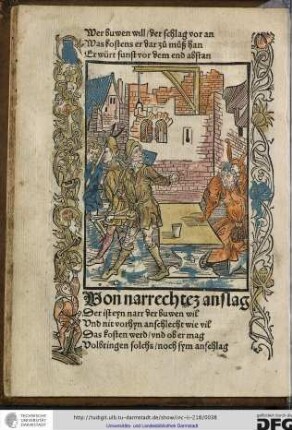 Wer buwen will / der schlag vor an
Was kostens er dar zů müß han
Er würt sunst vor dem end abstan
Von narrechtez anslag
Der ist eyn narr der buwen wil
Vnd nit vorhyn anschlecht wie vil
Das kosten werd / vnd ob er mag
Volbringen solchs / noch sym anschlag
TECHNISCHE
UNIVERSITÄT
DARMSTADT
http://tudigit.ulb.tu-darmstadt.de/show/inc-ii-218/0038
Universitäts- und Landesbibliothek Darmstadt
gefördert durch die
DFG